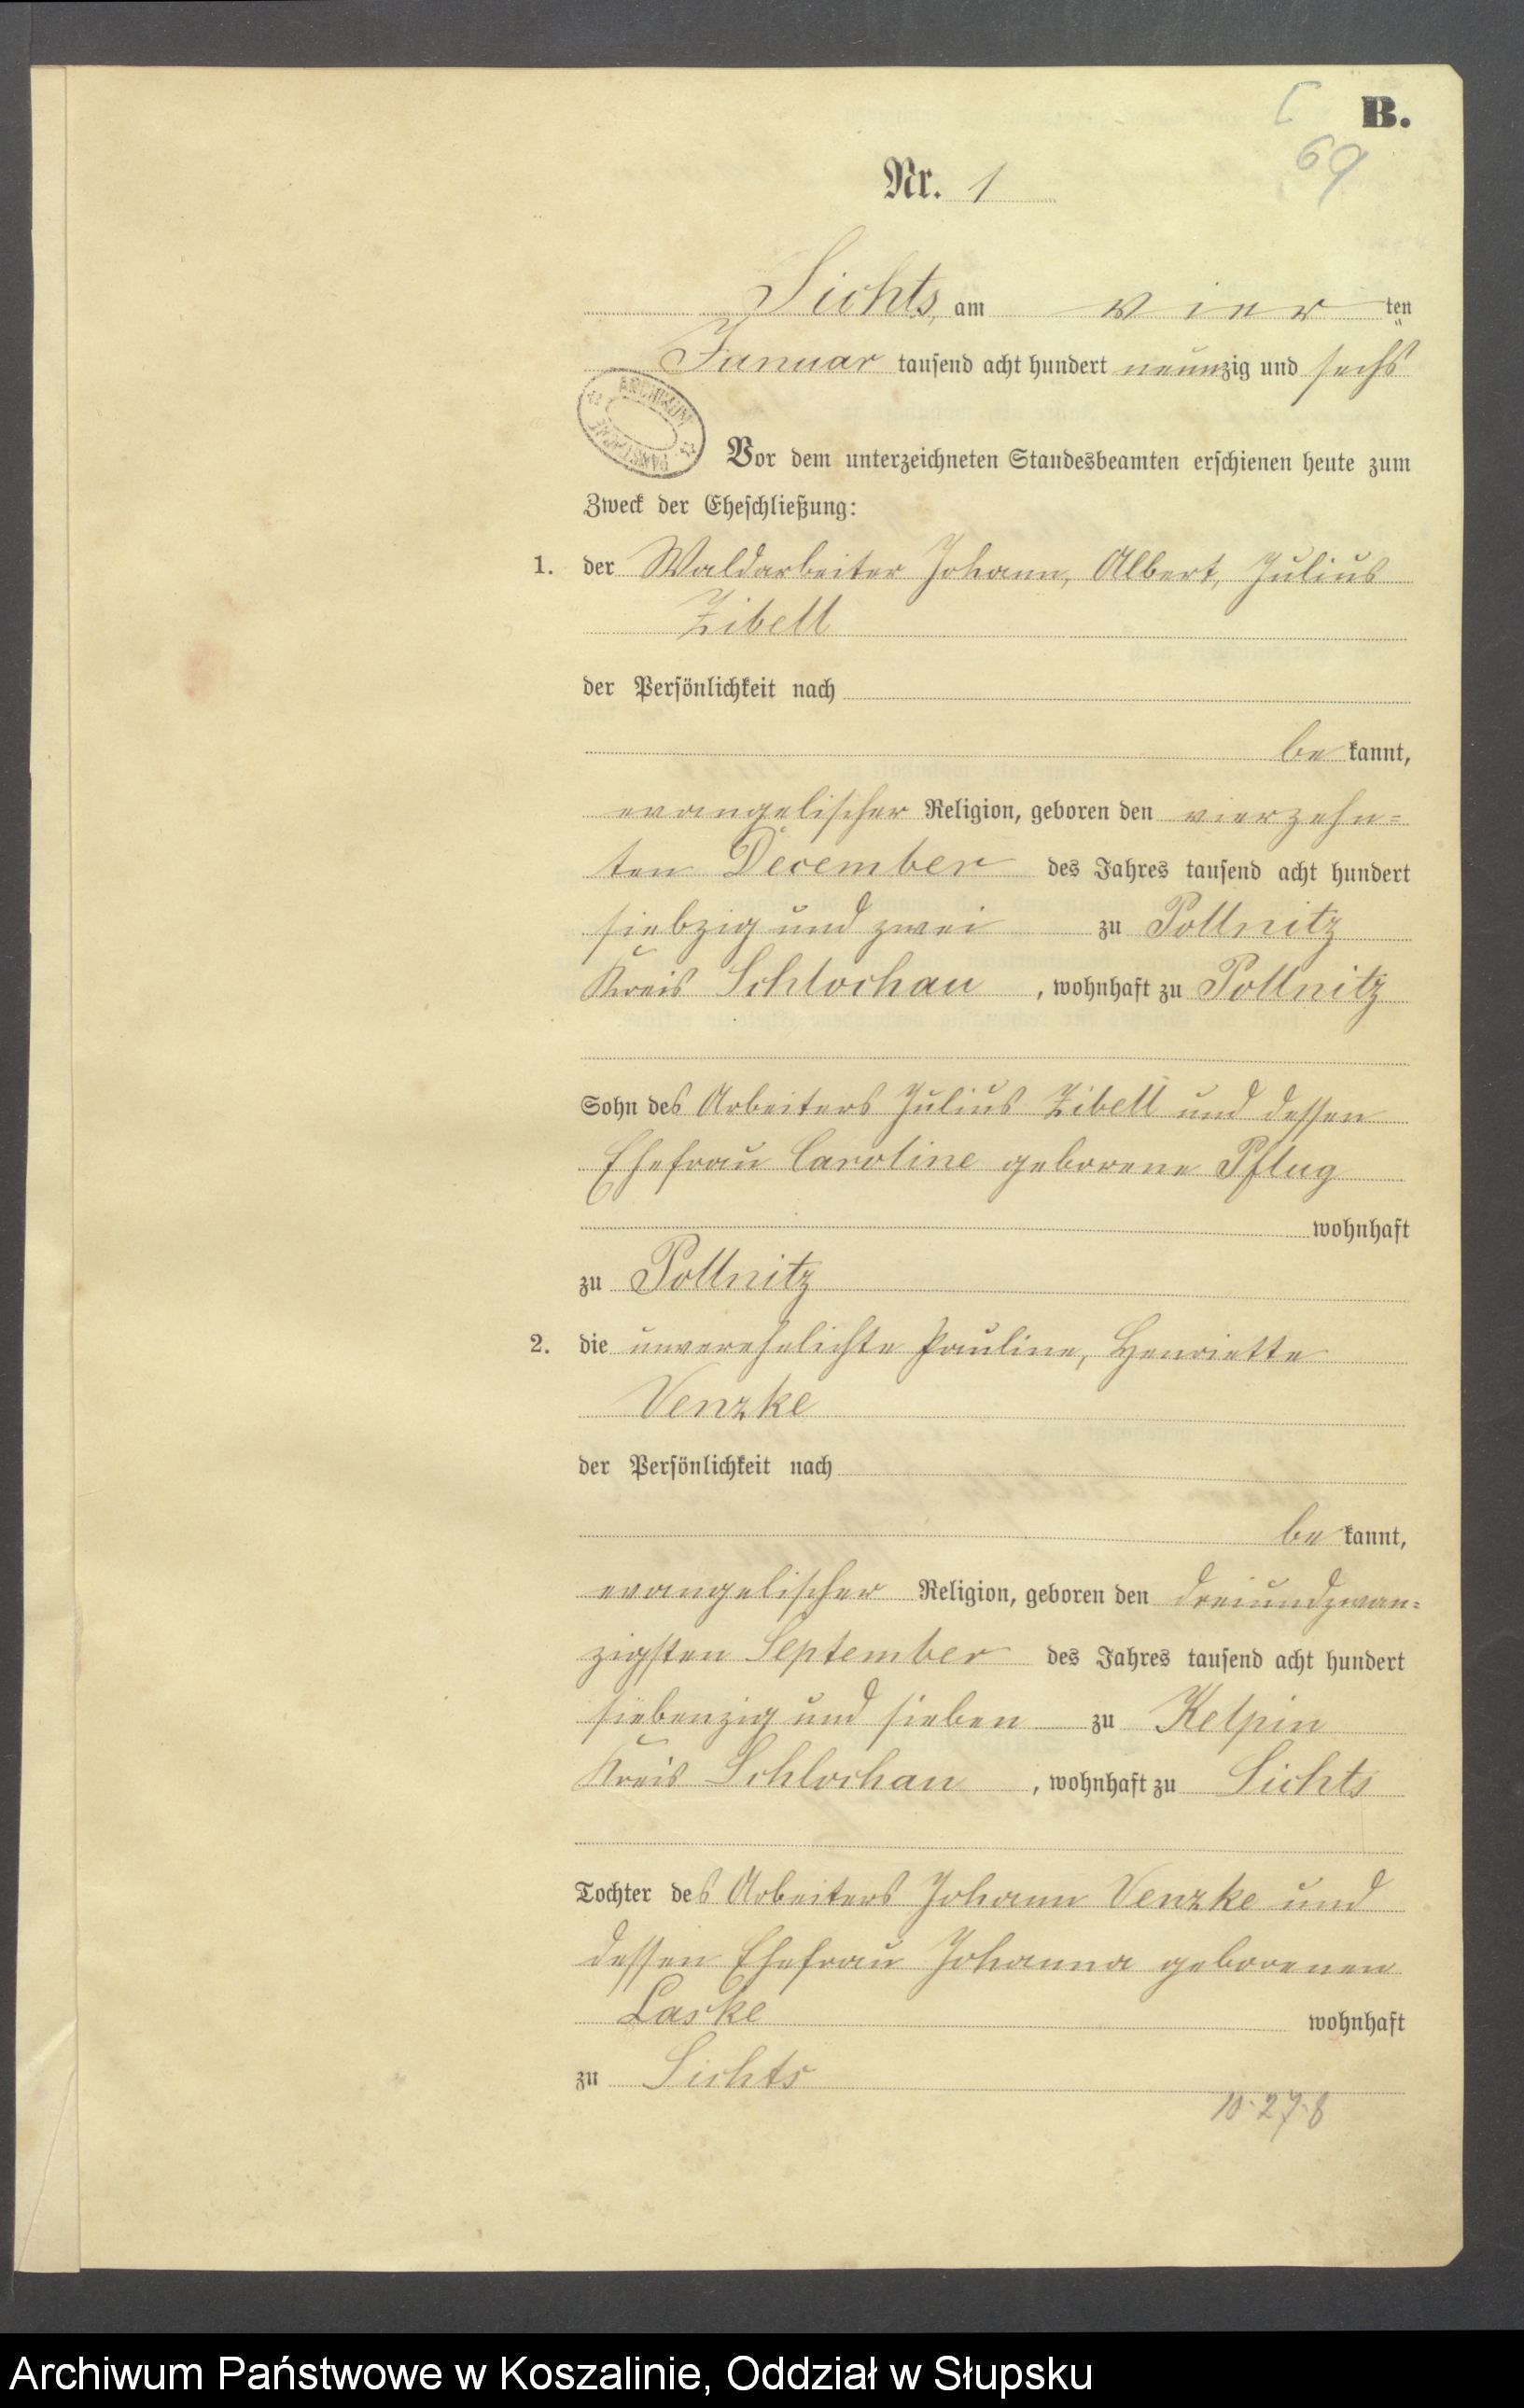 B.
69
Nr. 1
Sichts, am vier ten
Januar tausend acht hundert neunzig und sechs
ARCHIWUM PAŃSTWOWE
Vor dem unterzeichneten Standesbeamten erschienen heute zum
Zweck der Eheschließung:
1. der Waldarbeiter Johann, Albert, Julius
Zibell
der Persönlichkeit nach
be kannt,
evangelischer Religion, geboren den vierzehn=
ten December des Jahres tausend acht hundert
siebzig und zwei zu Pollnitz
Kreis Schlochau, wohnhaft zu Pollnitz
Sohn des Arbeiters Julius Zibell und dessen
Ehefrau Caroline geborene Pflug
wohnhaft
zu Pollnitz
2. die unverehelichte Pauline, Henriette
Venzke
der Persönlichkeit nach
be kannt,
evangelischer Religion, geboren den dreiundzwan=
zigsten September des Jahres tausend acht hundert
siebenzig und sieben zu Kelpin
Kreis Schlochau, wohnhaft zu Sichts
Tochter des Arbeiters Johann Venzke und
dessen Ehefrau Johanna geborenen
Laske wohnhaft
zu Sichts
10.27.8
Archiwum Państwowe w Koszalinie, Oddział w Słupsku